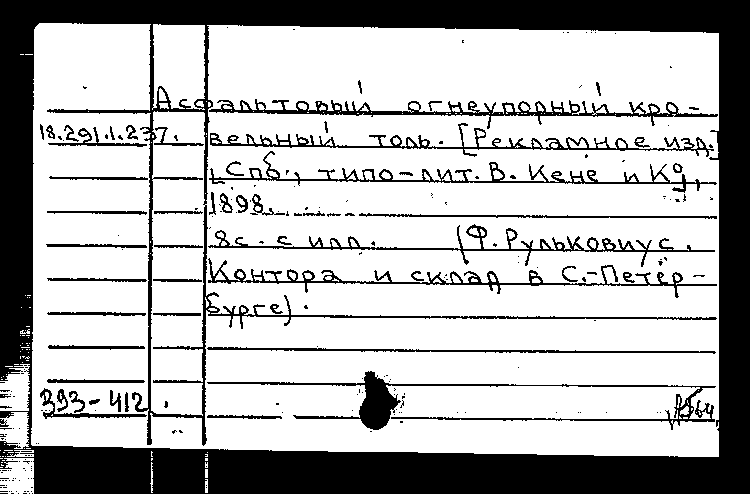 Асфальтовый огнеупорный кро-
18.291.1.237. вельный толь. [Рекламное изд.]
[Спб., типо-лит. В. Кене и К°],
1898.
8с. с илл. (Ф. Рульковиус.
Контора и склад в С.-Петер-
бурге).
393-412.